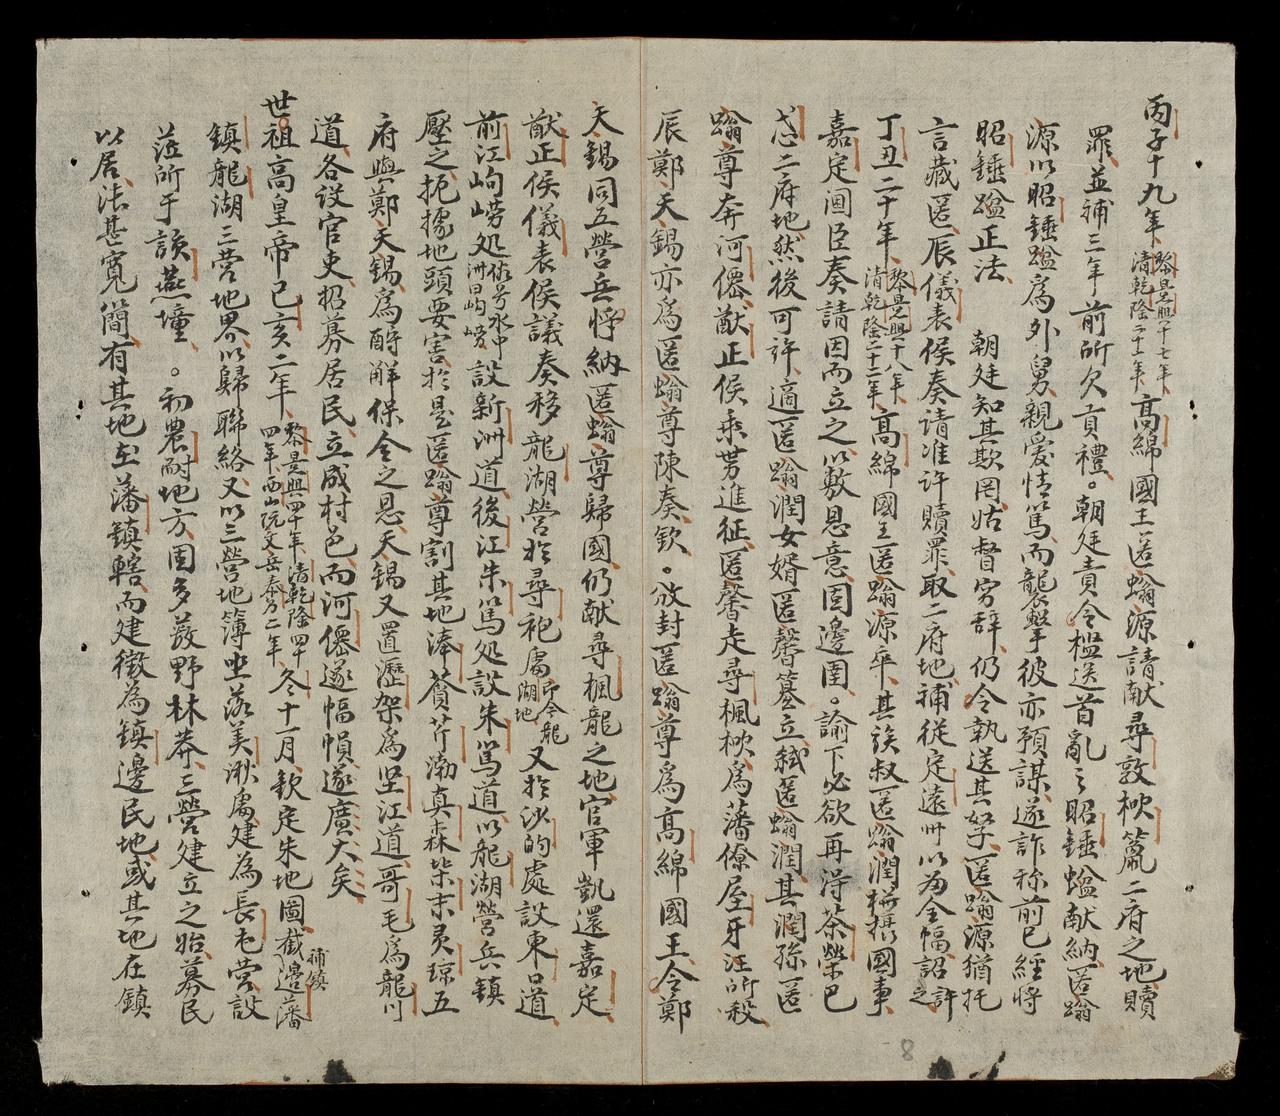 丙子十九年黎景興十七年清乾隆二十一年高綿國王匿螉源請献尋敦椥簄二府之地贖
罪並補三年前所欠貢禮。朝廷責令檻送首亂之昭錘䗌献納匿螉
源以昭錘䗌為外舅親愛情篤而襲擊彼亦預謀遂詐称前已經將
昭錘䗌正法 朝廷知其欺罔姑督穷辞仍令執送其孥匿螉源猶托
言藏匿辰儀表侯奏请准许贖罪取二府地補從定遠州以为全幅詔許之
丁丑二十年黎景興十八年清乾隆二十二年高綿國王匿螉源卒其族叔匿螉潤権攝國事
嘉定閫臣奏請因而立之以敷恩意固邊圉。諭下必欲再淂茶榮巴
忒二府地然後可许適匿螉潤女婿匿馨簒立弒匿螉潤其潤孫匿
螉尊奔河僊猷正侯乘势進征匿馨走尋楓椥為藩僚屋牙汪所殺
辰鄭天錫亦爲匿螉尊陳奏欽。敕封匿螉尊爲高綿國王令鄭
天錫同五營兵㨗納匿螉尊歸國仍献尋楓龍之地官軍凱還嘉定
猷正侯儀表侯議奏移龍湖營於尋袍處即今龍湖地又於沙的處設東口道
前江岣嶗処俗号水中洲曰岣嶗設新洲道後江朱篤処設朱篤道以龍湖營兵鎮
壓之扼據地頭要害於是匿螉尊割其地涍貧芹渤真森柴末灵琼五
府與鄭天錫爲酧觧保全之恩天錫又置瀝架爲坚江道哥毛爲龍川
道各设官吏招募居民立成村邑而河僊遂幅㡓遂廣大矣
世祖高皇帝己亥二年黎景興四十年清乾隆四十四年西山阮文岳泰徳二年冬十一月欽定朱地圖截邊藩補鎮
鎮龍湖三营地界以歸聯絡又以三營地簿坐落美湫處建為長屯营設
蒞所于該燕墥。初農耐地方固多薮野林莽三營建立之始募民
以居法甚寬簡有其地在藩鎮轄而建徵為鎮邊民地或其地在鎮
8